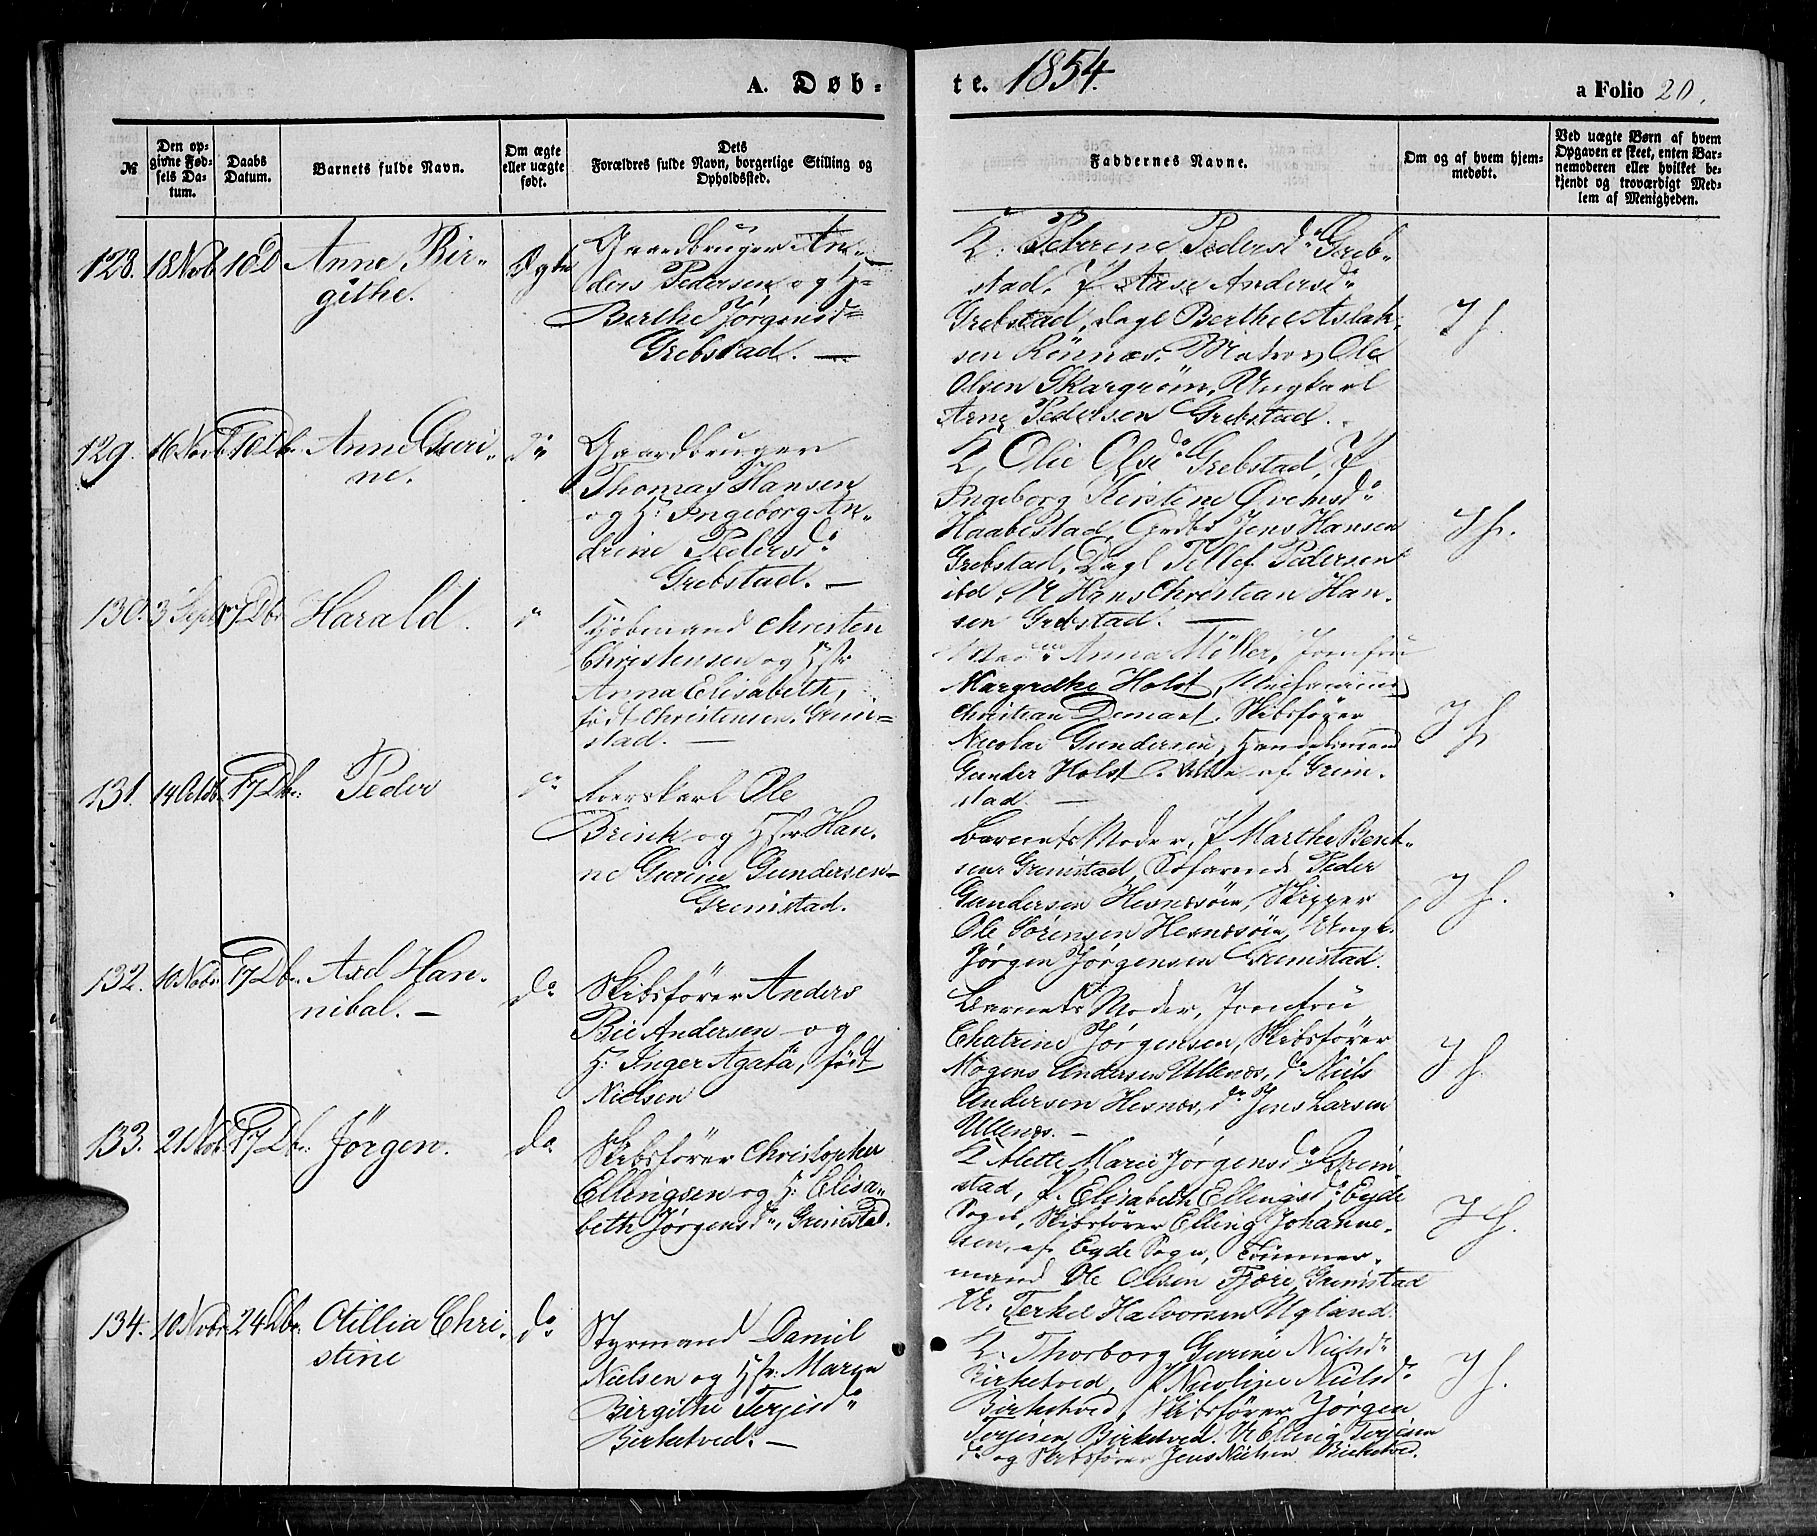 A. Døb-
te. 1854.
a Folio 20.
№
Den op-
givne Fød-
sels Da-
tum.
Daabs
Datum.
Barnets fulde Navn.
Om ægte
eller uægte
født.
Dets
Forældres fulde Navn, borgerlige Stilling og
Opholdssted.
Faddernes Navne.
Om og af hvem hjem-
medøbt.
Ved uægte Børn af hvem
Opgaven er skeet, enten Bar-
nemoderen eller hvilket be-
kjendt og troværdigt Med-
lem af Menigheden.
128. 18 Nob 10 D Anne Bir-
githe.
Ægte
Gaardbruger An-
ders Pedersen og H
Berthe Jørgensd
Grebstad. —
K. Petrine Pedersd Greb-
stad, P Aase Andersd
Grebstad, Dagl Berthel Aslak-
sen Rönnæs, Matros Ole
Olsen Skargrøm, Ungkarl
Arne Pedersen Grebstad.
J h.
129. 16 Novb 10 Db Anne Guri-
ne.
do
Gaardbruger
Thomas Hansen
og H. Ingeborg An-
drine Pedersd
Grebstad. —
K. Olie Olsd Grebstad, P
Ingeborg Kirstine
Haabestad, Jens Hansen
Grebstad, Dagl Tellef Pedersen
ibd U Hans Christian Han-
sen Grebstad. —
J h.
130. 3 Sept 17 Dbr Harald.
do
Kjöbmand Christen
Christensen og Hstr
Anna Elisabeth,
födt Christensen, Grim-
stad. —
Anna Möller, Jomfru
Margrethe Holst,
Christian Skibsfører
Nicolai Gundersen, Handelsmand
Gunder Holst. Alle af Grim-
stad. —
J h
131. 14 Octbr 17 Dbr. Peder
do
Ole
Brink og Hstr Han-
ne Gurine Gundersen
Grimstad.
Barnets Moder, P Marthe Bent-
sen Grimstad, Söfarende Peder
Gundersen Hesnesöen, Skipper
Ole Sörensen Hesnesöen, Ungk.
Jørgen Jørgensen Grimstad.
J h.
132. 10 Nobr 17 Dbr. Axel Han-
nibal. —
do
Skibsfører Anders
Bie Andersen og
H. Inger Agata, født
Nielsen
Barnets Moder, Jomfru
Chatrine Jørgensen, Skibsfører
Mogens Andersen Ullenes, do Niels
Andersen Hesnes, do Jens Larsen
Ullenes. —
J h.
133. 21 Nob. 17 Db. Jørgen.
do
Skibsfører Christopher
Ellingsen og H. Elisa-
beth Jørgensd, Grimstad.
K Alette Marie Jørgensd Grim-
stad, P. Elisabeth Ellingsd, Eyde
Sogn, Skibsfører Elling Johanne-
sen, af Eyde Sogn, Tömmer-
mand Ole Olsen Fjære, Grimstad
U. Terkel Halvorsen Ugland.
J h.
134. 10 Nobr 24 Dbr. Otillia Chri-
stine
do
Styrmand Daniel
Nielsen og Hstr. Maren
Birgithe Terjesd
Birketved. —
K. Thorborg Gurine Nielsd
Birketved, P Nicoline Nielsd
Birketved, Skibsfører Jørgen
Terjesen Birketved. U Elling Terjesen
do og Skibsfører Jens Nielsen Birketved.
J h.